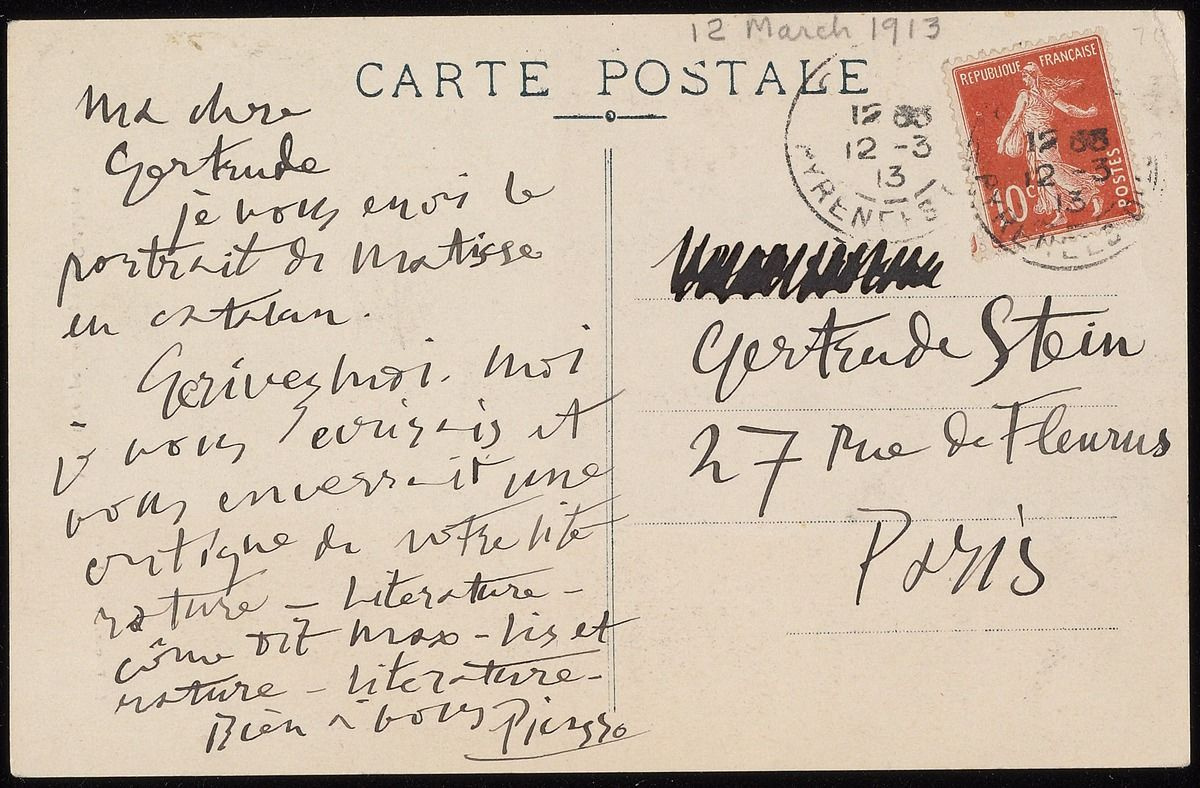 12 March 1913
CARTE POSTALE
REPUBLIQUE FRANÇAISE
10c
POSTES
12
12 -3
13
PYRENEES
12
12 -3
13
ma chere
Gertrude
je vous envois le
portrait de Matisse
en catalan.
Gerivez moi. moi
je vous ecrirais et
vous enverrait une
critique de votre lite
rature – literature –
côme dit Max – lis et
rature – literature –
Bien à vous Picasso
Gertrude Stein
27 rue de Fleurus
Paris